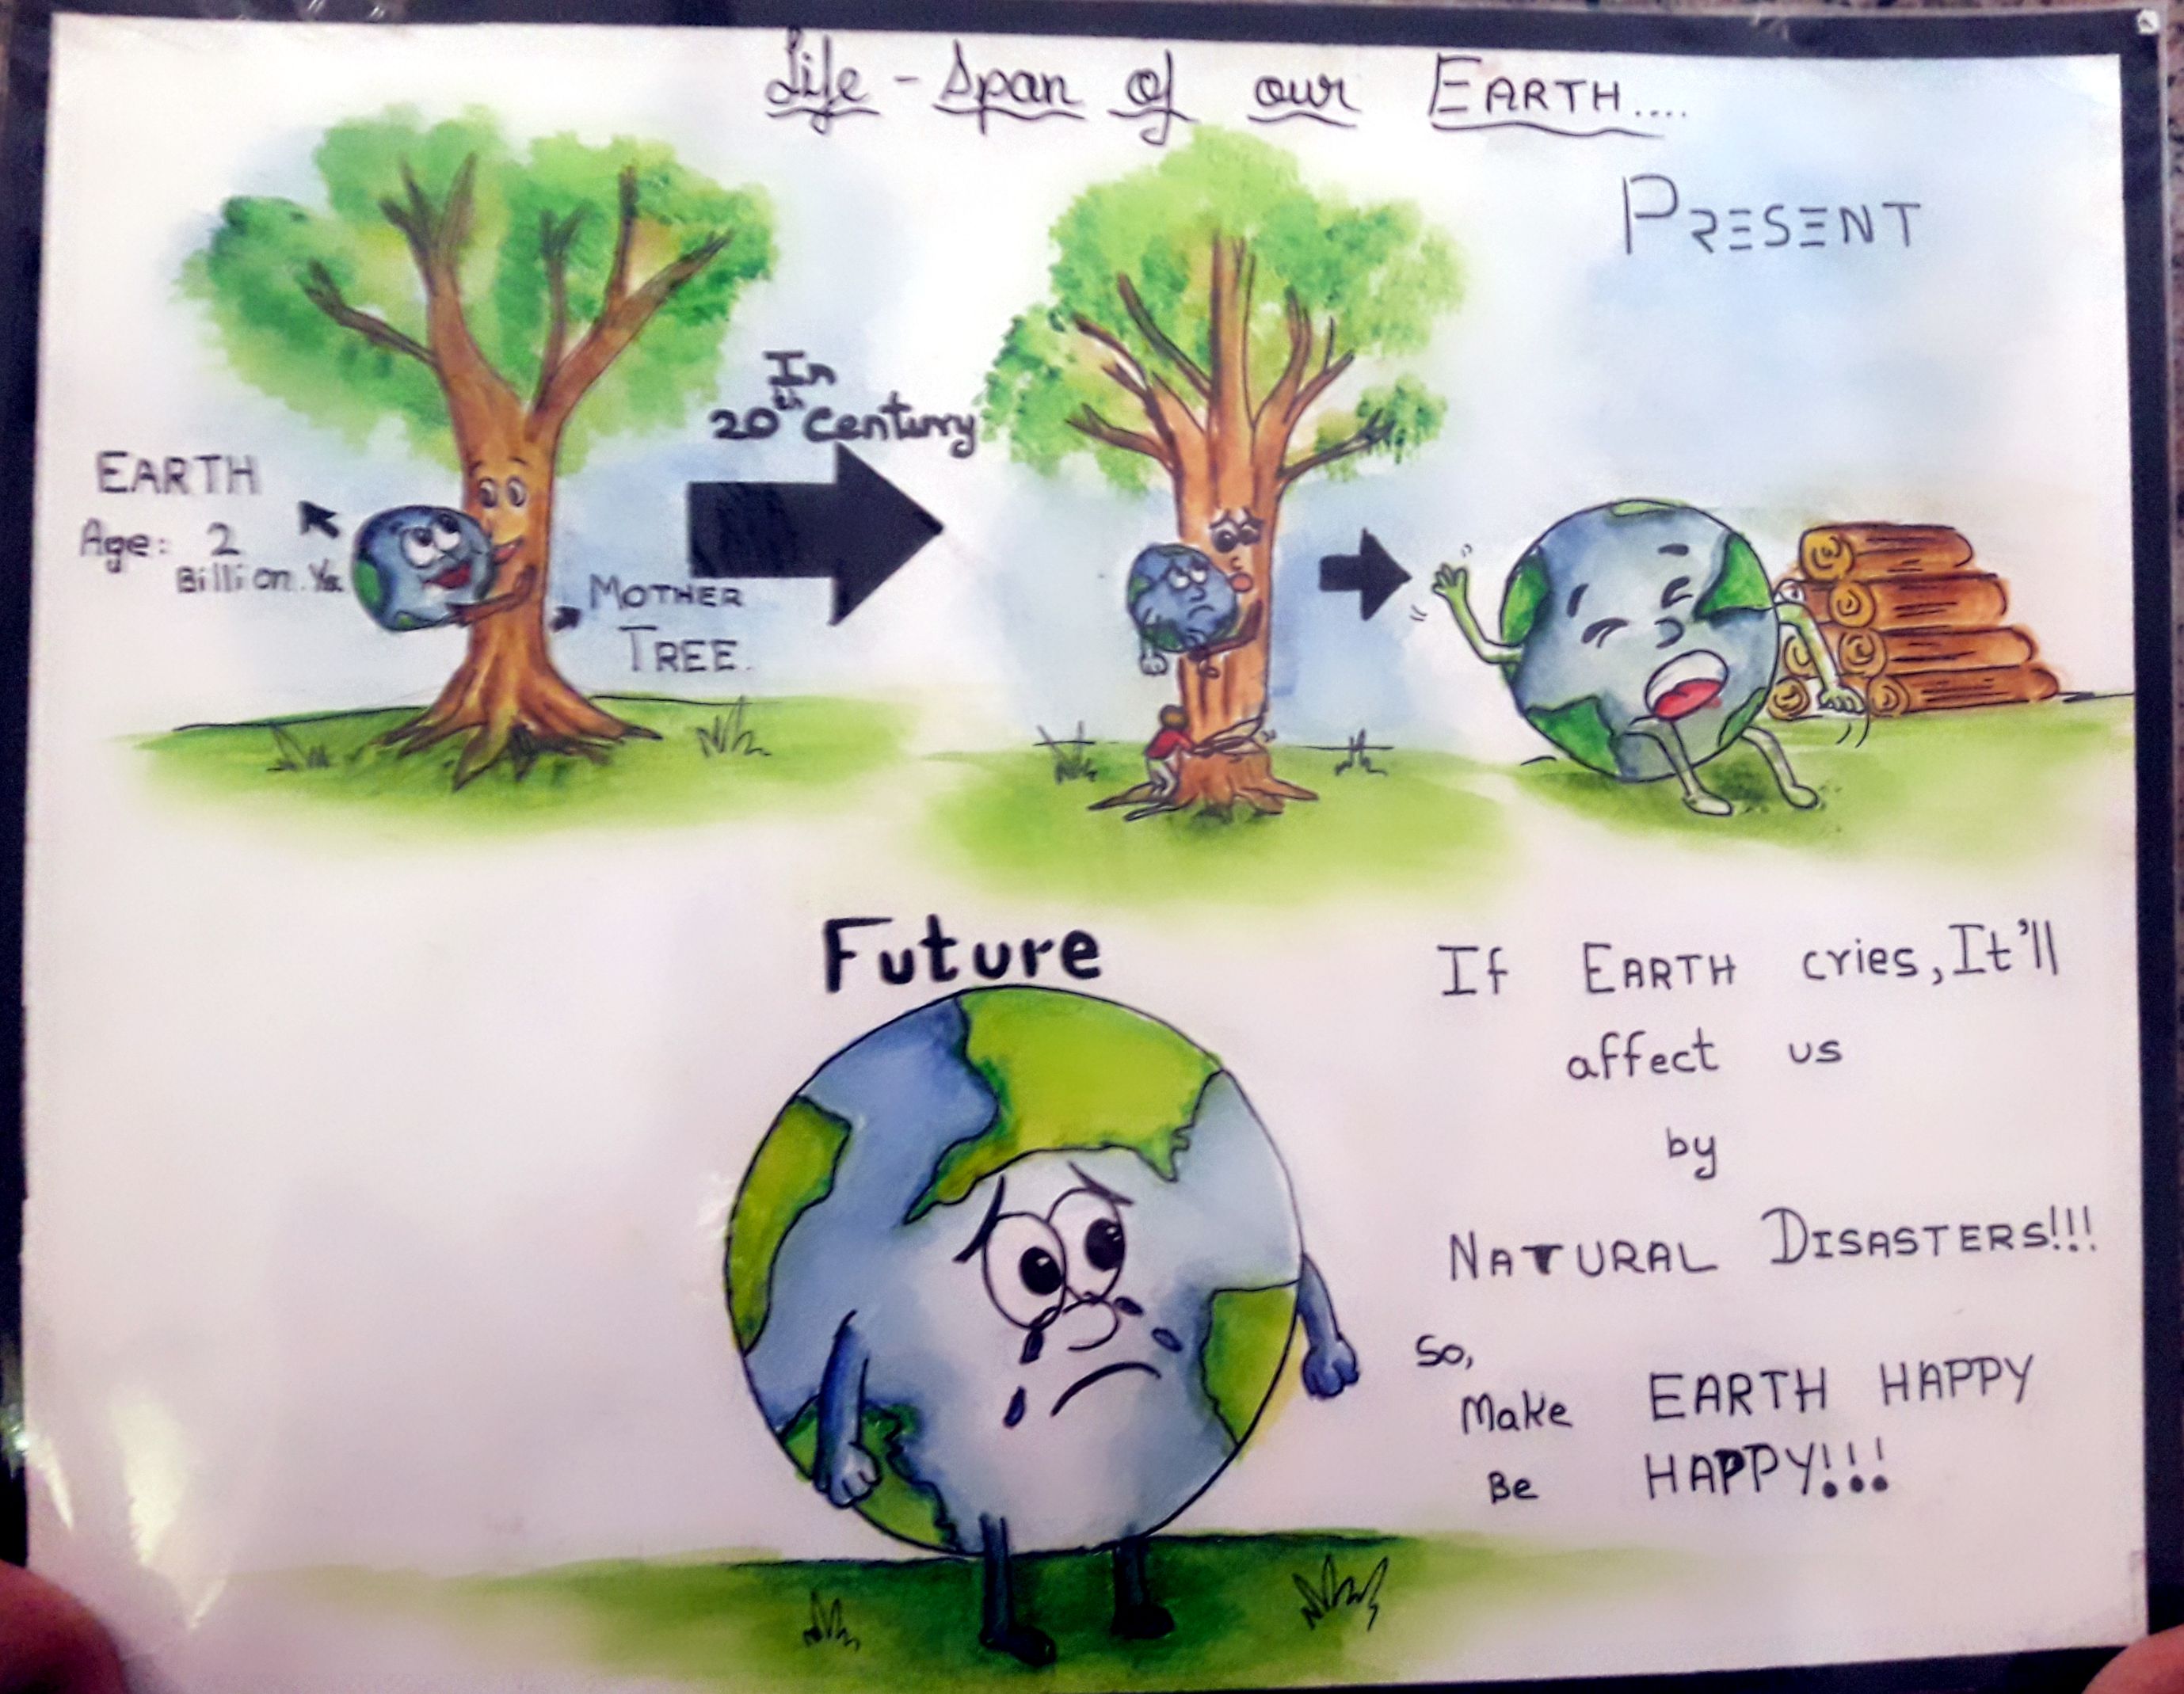 Life-Span of our EARTH....
PRESENT
In
20th Century
EARTH
Age: 2
Billion Yrs
MOTHER
TREE.
Future
If EARTH cries, It'll
affect us
by
NATURAL DISASTERS!!!
So,
Make EARTH HAPPY
Be HAPPY!!!